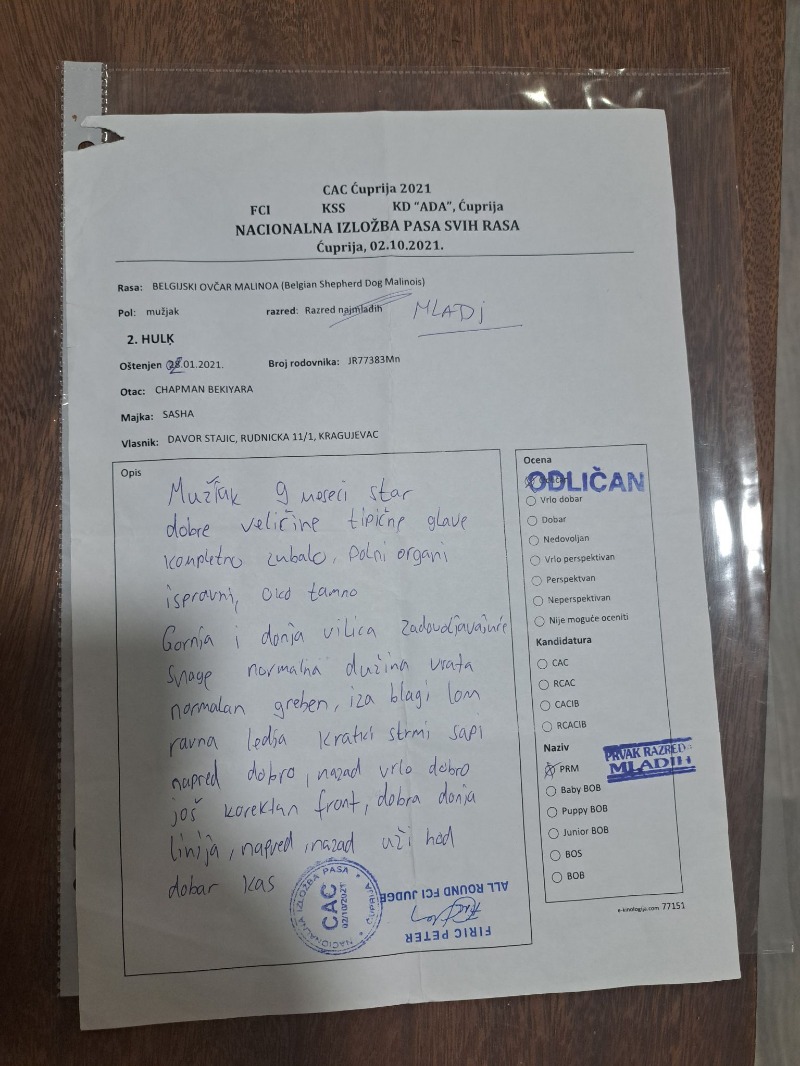 CAC Ćuprija 2021
FCI KSS KD "ADA", Ćuprija
NACIONALNA IZLOŽBA PASA SVIH RASA
Ćuprija, 02.10.2021.
Rasa: BELGIJSKI OVČAR MALINOA (Belgian Shepherd Dog Malinois)
Pol: mužjak razred: Razred najmlađih MLADI
2. HULK
Oštenjen .01.2021. Broj rodovnika: JR77383Mn
Otac: CHAPMAN BEKIYARA
Majka: SASHA
Vlasnik: DAVOR STAJIC, RUDNICKA 11/1, KRAGUJEVAC
Opis
Mužjak 9 meseci star
dobre veličine tipične glave
kompletno zubalo, polni organi
ispravni, oko tamno
Gornja i donja vilica zadovoljavajuće
snage normalna dužina vrata
normalan greben, iza blagi lom
ravna ledja kratki strmi sapi
napred dobro, nazad vrlo dobro
još korektan front, dobra donja
linija, napred, nazad uži hod
dobar kas
NACIONALNA IZLOŽBA PASA
CAC
02/10/2021
ĆUPRIJA
ALL ROUND FCI JUDGE
FIRIC PETER
Ocena
ODLIČAN
Vrlo dobar
Dobar
Nedovoljan
Vrlo perspektivan
Perspektvan
Neperspektivan
Nije moguće oceniti
Kandidatura
CAC
RCAC
CACIB
RCACIB
Naziv
PRVAK RAZREDA
MLADIH
PRM
Baby BOB
Puppy BOB
Junior BOB
BOS
BOB
e-kinologija.com 77151